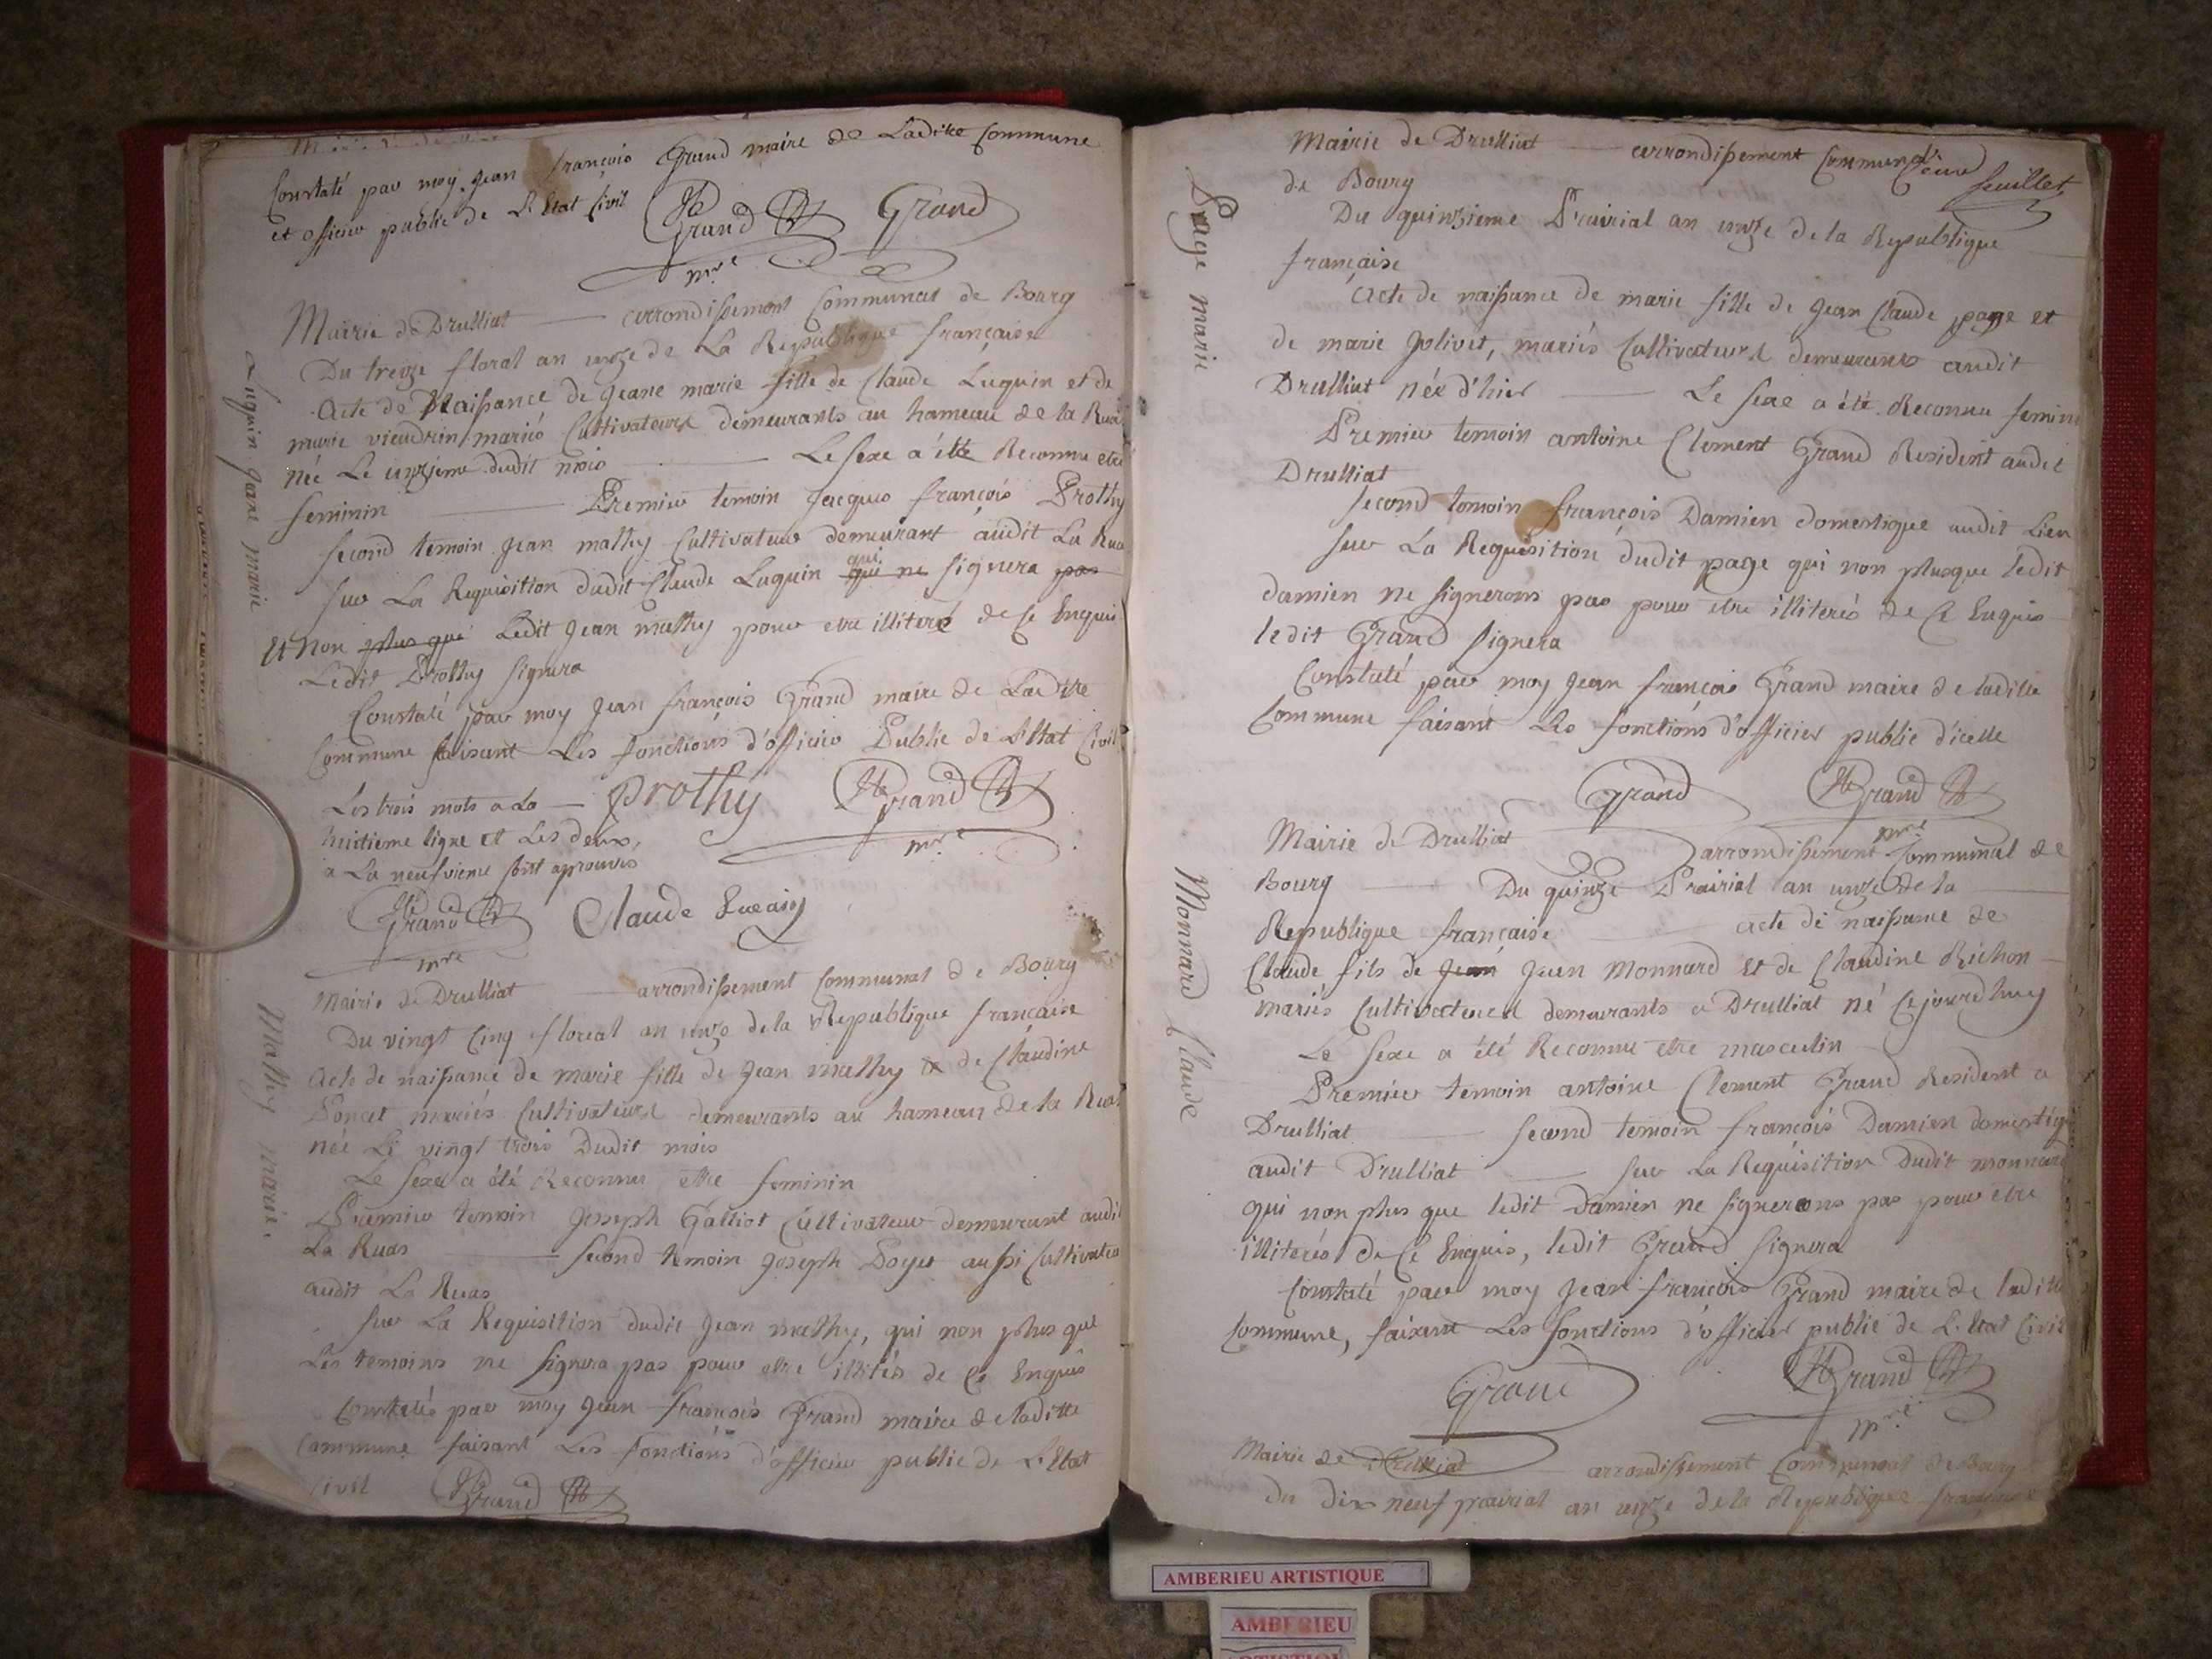 Constaté par moy Jean françois Grand maire de Ladite Commune
et officier public de L'Etat Civil
Grand Grand
mre
Luquin Jane marie
Mairie de Drulliat arrondissement Communal de Bourg
Du treize floral an unze de La Republique française
Acte de Naissance de Jeane marie fille de Claude Luquin et de
marie vieudrin mariés Cultivateurs demeurants au hameau de la Ruas
née Le unzieme dudit mois Le sexe a été Reconnu etre
feminin Premier temoin Jacques françois Prothy
second temoin Jean mathy Cultivateur demeurant audit La Rua
sur La Requisition dudit Claude Luquin qui ne signera pas
qui
et Non plus que Ledit Jean mathy pour etre illiteré de ce Enquis
Ledit Prothy signera
Constaté par moy Jean françois Grand maire de Ladite
Commune faisant Les fonctions d'officier Public de L'Etat Civil
Les trois mots a La Prothy Grand
huitieme ligne et Les deux mre
a La neufvieme sont aprouvés
Grand Claude
mre
Mathy marie
Mairie de Drulliat arrondissement Communal de Bourg
Du vingt Cinq floreal an unze de la Republique française
Acte de naissance de marie fille de Jean mathy & de Claudine
Poncet mariés Cultivateurs demeurants au hameau de la Ruas
née Le vingt trois Dudit mois
Le sexe a été Reconnu etre feminin
Premier temoin Joseph Galliot Cultivateur demeurant audit
La Ruas second temoin Joseph Poyet aussi Cultivateur
audit La Ruas
sur La Requisition dudit Jean mathy, qui non plus que
Les temoins ne signera pas pour etre illités de Ce Enquis
Constatés par moy Jean françois Grand maire de laditte
Commune faisant Les fonctions d'officier public de L'Etat
Civil Grand
Mairie de Drulliat arrondissement Communal
feuillet
de Bourg
Page marie
Du quinzieme Prairial an unze de la Republique
française
Acte de naissance de marie fille de Jean Claude page et
de marie Jolivet, mariés Cultivateurs demeurants audit
Drulliat née d'hier Le sexe a été Reconnu femini
Premier temoin antoine Clement Grand Resident audit
Drulliat
second temoin françois Damien domestique audit Lieu
sur La Requisition dudit page qui non plusque ledit
damien ne signerons pas pour etre illiterés de Ce Enquis
ledit Grand signera
Constaté par moy Jean françois Grand maire de ladite
Commune faisant Les fonctions d'officier public d'icelle
Grand Grand
mre
Monnard Claude
Mairie de Drulliat arrondissement Communal de
Bourg Du quinze Prairial an unze de la
Republique française acte de naissance de
Claude fils de Jean Jean Monnard et de Claudine Richon
mariés Cultivateurs demeurants a Drulliat né Cejourdhuy
Le sexe a été Reconnu etre masculin
Premier temoin antoine Clement Grand Resident a
Drulliat second temoin françois Damien domestiq
audit Drulliat sur La Requisition dudit monnard
qui non plus que ledit Damien ne signerons pas pour etre
illiterés de Ce Enquis, ledit Grand signera
Constaté par moy Jean françois Grand maire de ladite
Commune, faisant Les fonctions d'officier public de L'Etat Civil
Grand Grand
mre
Mairie de Drulliat arrondissement Communal de Bourg
du dix neuf prairial an unze de la Republique française
AMBERIEU ARTISTIQUE
AMBERIEU
ARTISTIQUE